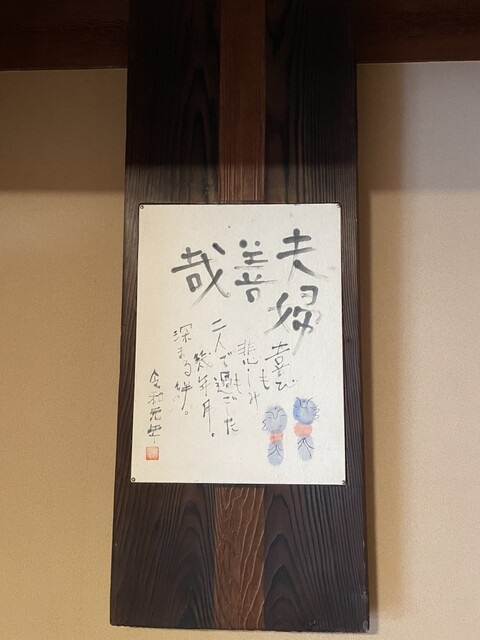 夫婦
善
哉
喜びも
悲しみも
二人で過ごした
幾年月。
深まる絆。
令和元年